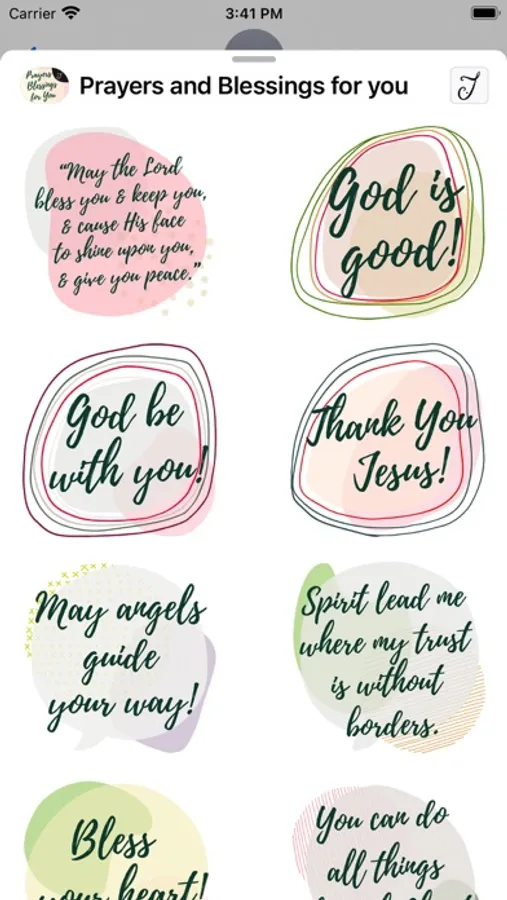 Carrier
3:41 PM
Prayers and Blessings for You
Prayers and Blessings for you
J
“May the Lord
bless you & keep you,
& cause His face
to shine upon you,
& give you peace.”
God is
good!
God be
with you!
Thank You
Jesus!
May angels
guide
your way!
Spirit lead me
where my trust
is without
borders.
Bless
your heart!
You can do
all things